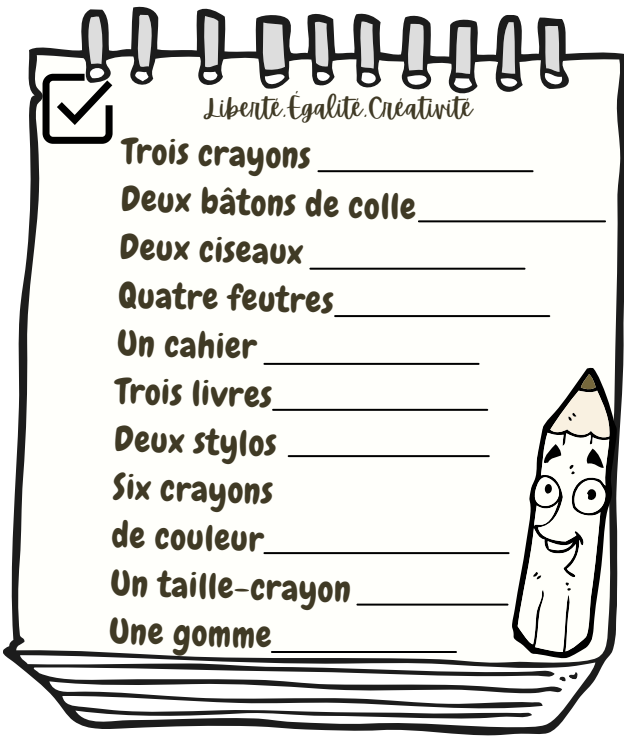 Liberté.Égalité.Créativité
Trois crayons
Deux bâtons de colle
Deux ciseaux
Quatre feutres
Un cahier
Trois livres
Deux stylos
Six crayons
de couleur
Un taille-crayon
Une gomme